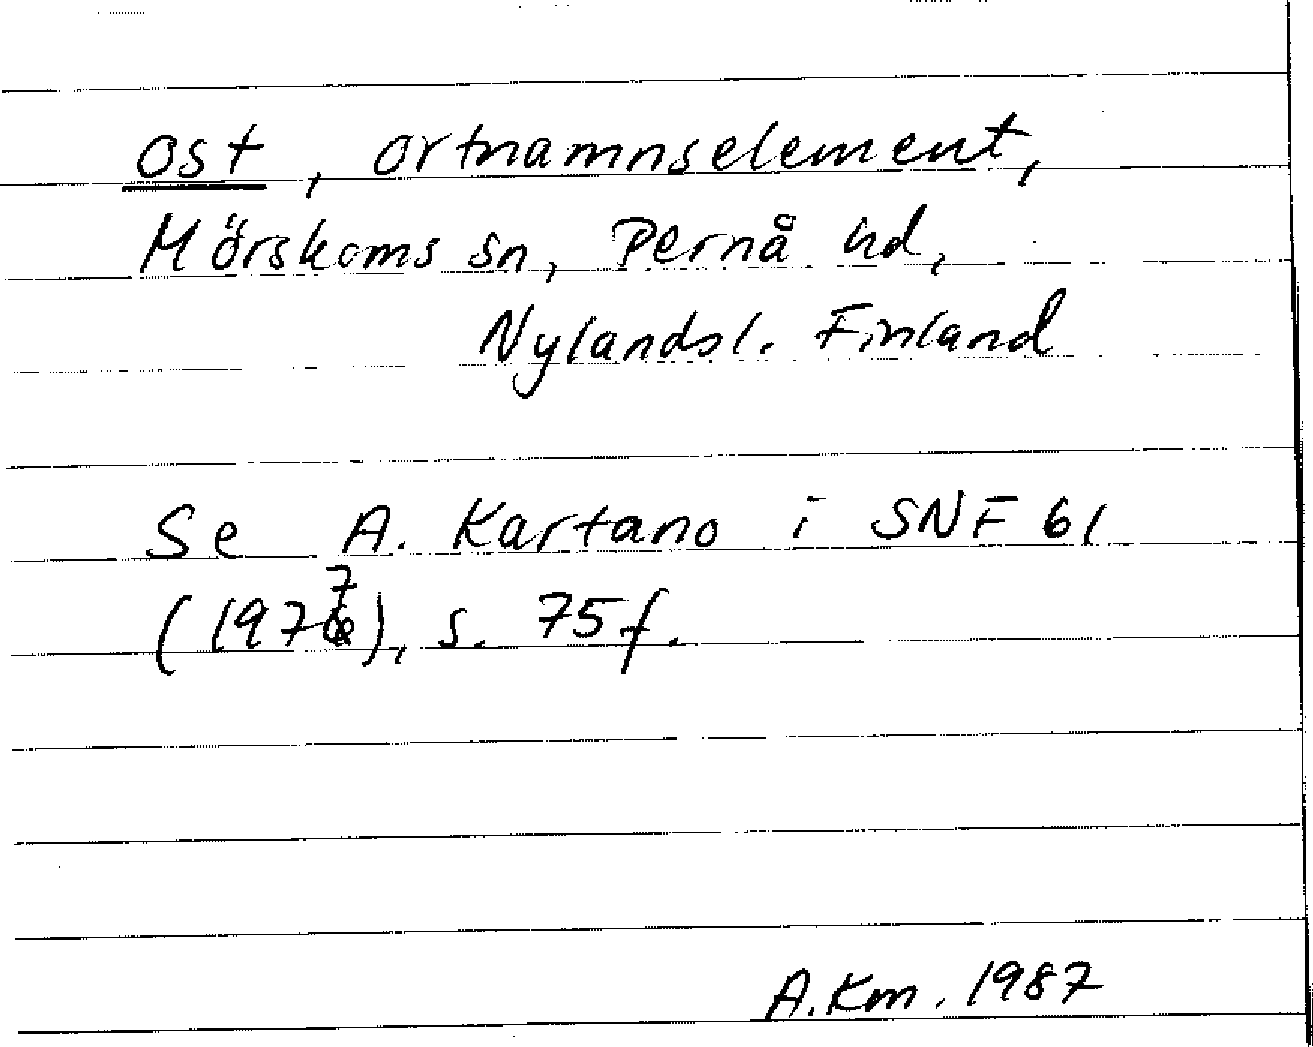 ost, ortnamnselement,
Mörskoms sn, Pernå hd,
Nylandsl. Finland
Se A. Kartano i SNF 61
(1977), s. 75 f.
A.Km. 1987